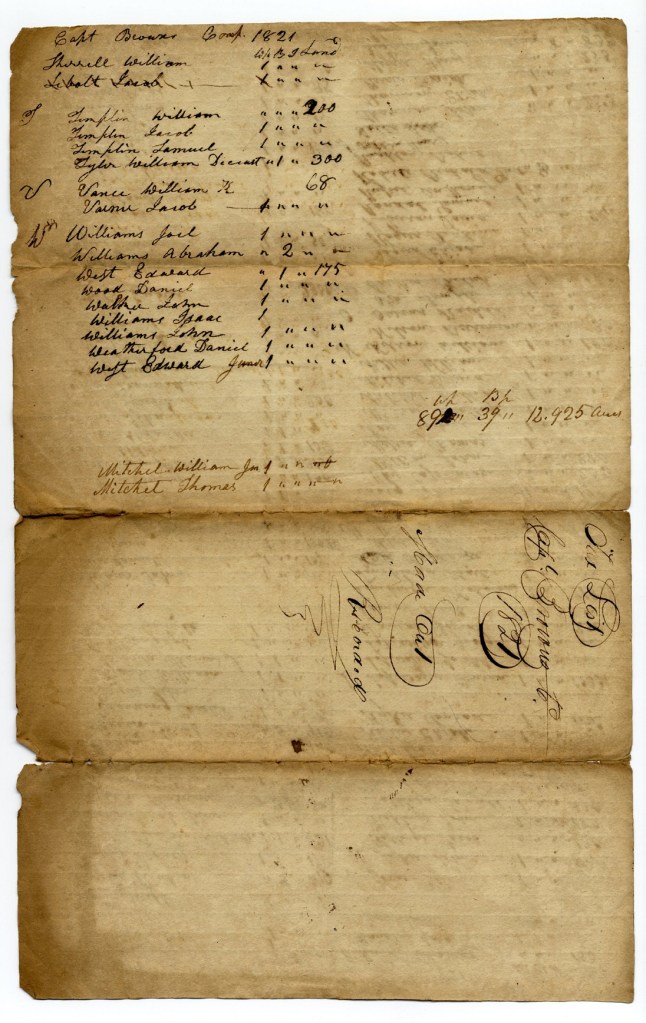 Capt Browns Comp. 1821
Wp B P Land
Sherrell William 1 " " "
Sibolt Jacob x " " "
T Timplin William " " " 200
Timplin Jacob 1 " " "
Timplin Samuel 1 " " "
Tyler William Diceast " 1 " 300
V Vance William 68
Varner Jacob " " "
W Williams Joel 1 " " "
Williams Abraham " 2 " "
West Edward " 1 " 175
Wood Daniel 1 " " "
Walker John 1 " " "
Williams Isaac 1
Williams John 1 " " "
Weatherford Daniel 1 " " "
West Edward Junior 1 " " "
wp Bp
89 " 39 " 12.925 Acres
Mitchel William Jun 1 " "
Mitchel Thomas 1 " " "
Tax List
Capt Browns Co
1821
Made Out
Recorded